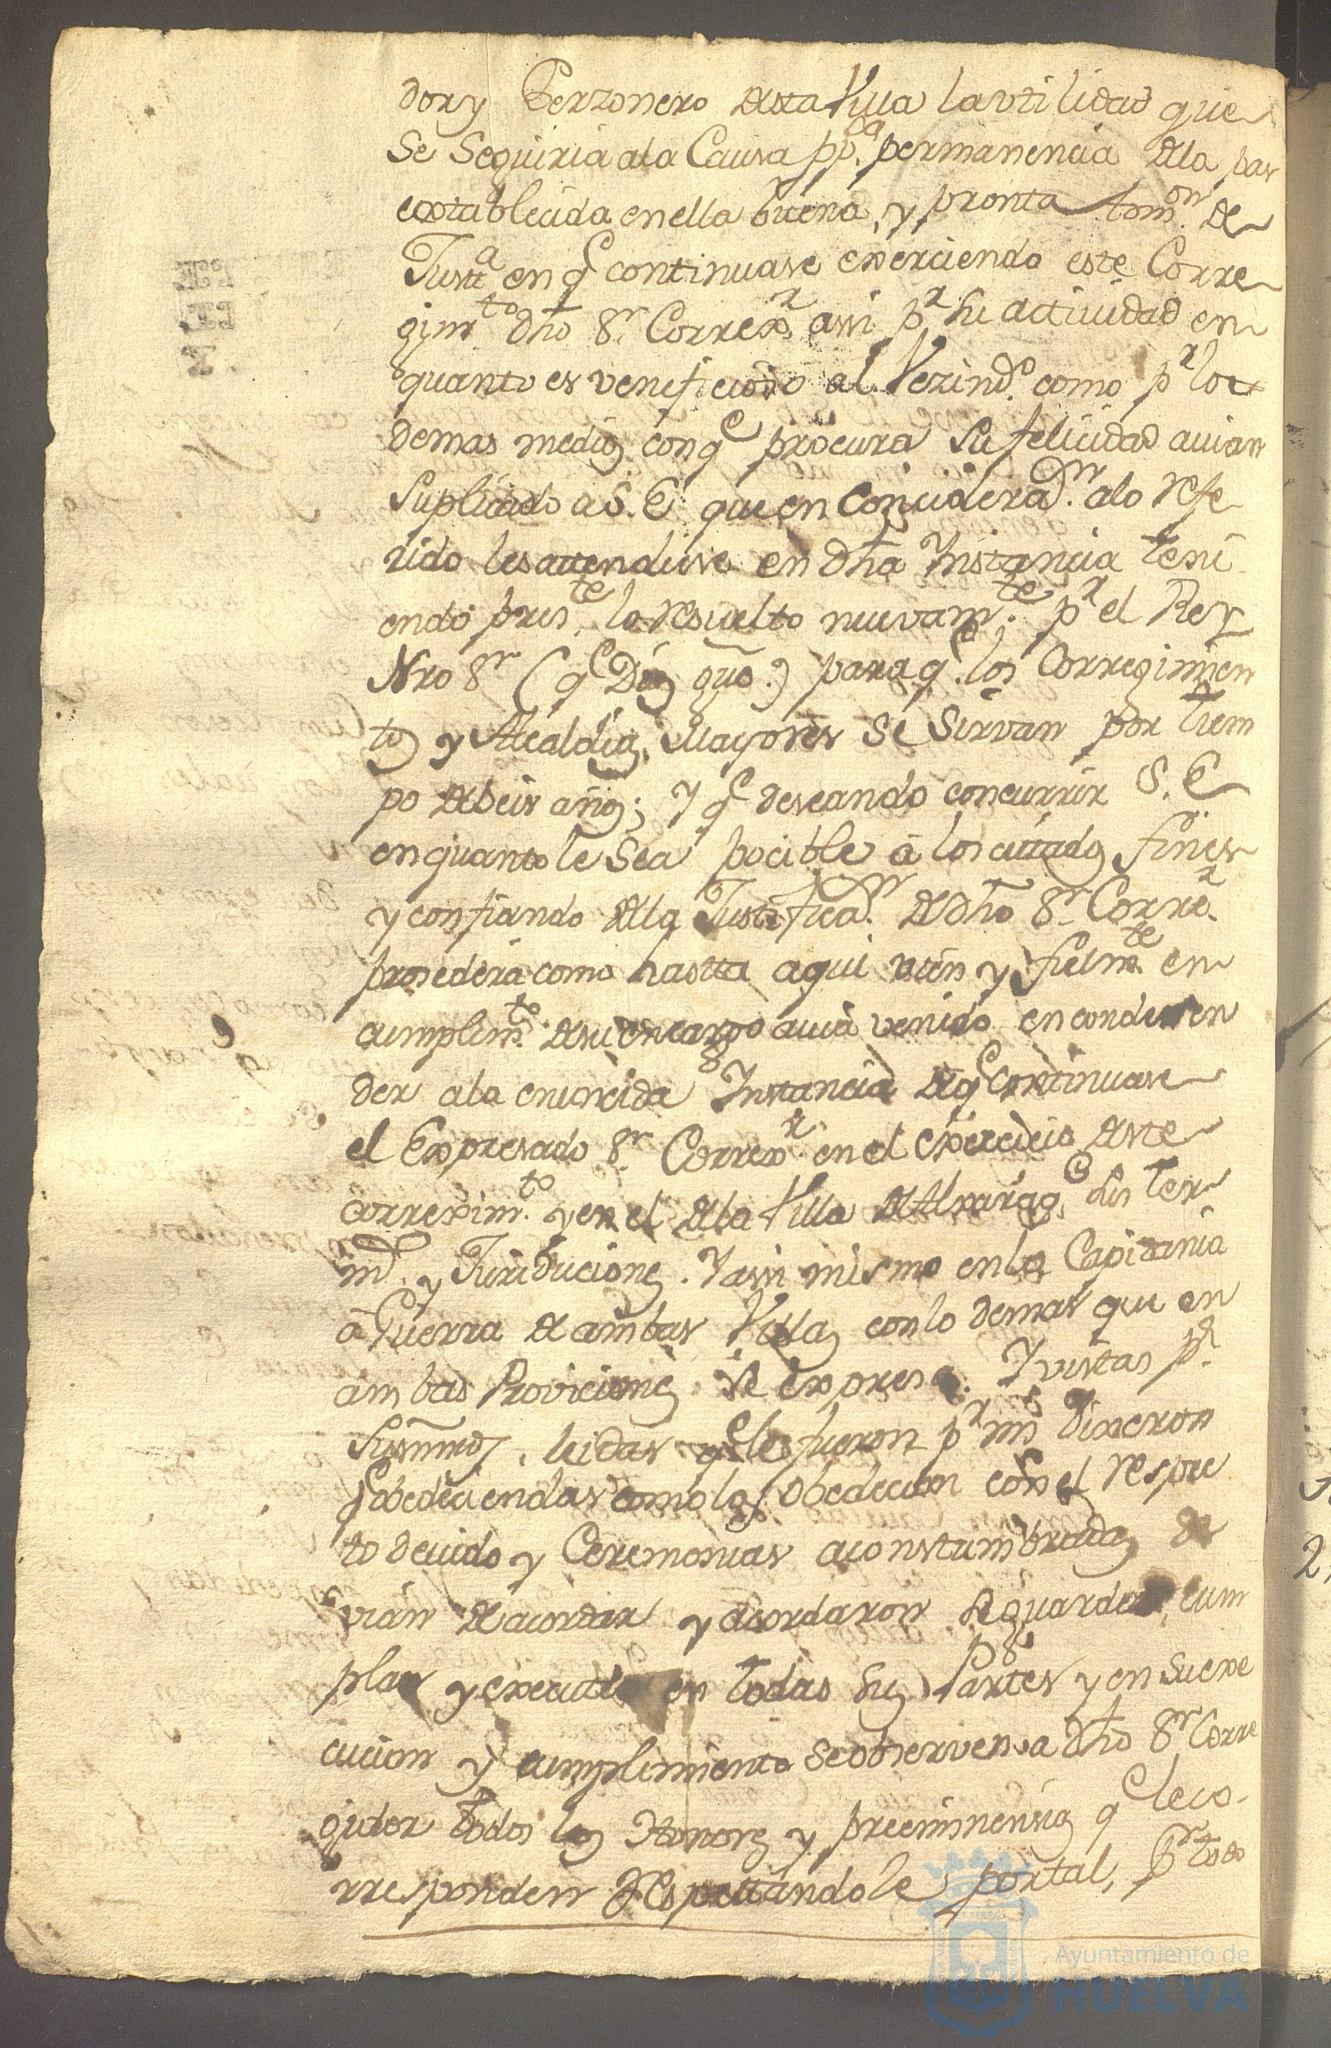 dor y Perzonero desta Villa la vtilidad que
Se Seguiria ala Causa pp.ca permanencia dela pas
extablecida en ella buena, y pronta tom.on de
Justa en q.e continuase exerciendo este Corre
gim.to dho S.r Correx.r assi p.r su actiuidad en
quanto es veneficioso al Vezind.o como p.r los
demas medios con q.e procura su felicidad auian
Suplicado a S. E. que en Conciderad.n alo refe
rido les attendiese en dha Instancia teni
endo pres.te lo resuelto nuevam.te p.r el Rey
Nro S.r (q.e Dios gue.) para q.e los Corregimien
tos y Alcaldias Mayores se Sirvan por tiem
po de seis años; Y q.e deseando concurrir S. E.
en quanto le Sea pocible á los citados fines
y confiando dela Justificad.n de dho S.r Corre.r
procedera como hastta aqui vien y fielm.te en
cumplim.to de su encargo auia venido en condesen
der ala enunciada Instancia de q.e Continuase
el Expresado S.r Correx.r en el exercicio deste
correxim.to y en el dela Villa de Alxaraq.e sus ter
mos y Juridiciones. Y assi mismo en la Capitania
á Guerra de ambas Villas con lo demas que en
ambas Proviciones se expresa. Y vistas p.r
Susmrds, leidas q.e les fueron p.r mi Dixeron
q.e obedeciendolas como las obedecian con el respe
to devido y Ceremonias aconstumbradas de
vian de acordar y acordaron se guarden, cum
plan y executen en todas sus Partes y en su exe
cucion y cumplimiento se observen a dho S.r Corre
gidor todos los Honores y preeminencias q.e le co
rresponden Respectandole por tal, p.r todo
Ayuntamiento de
HUELVA